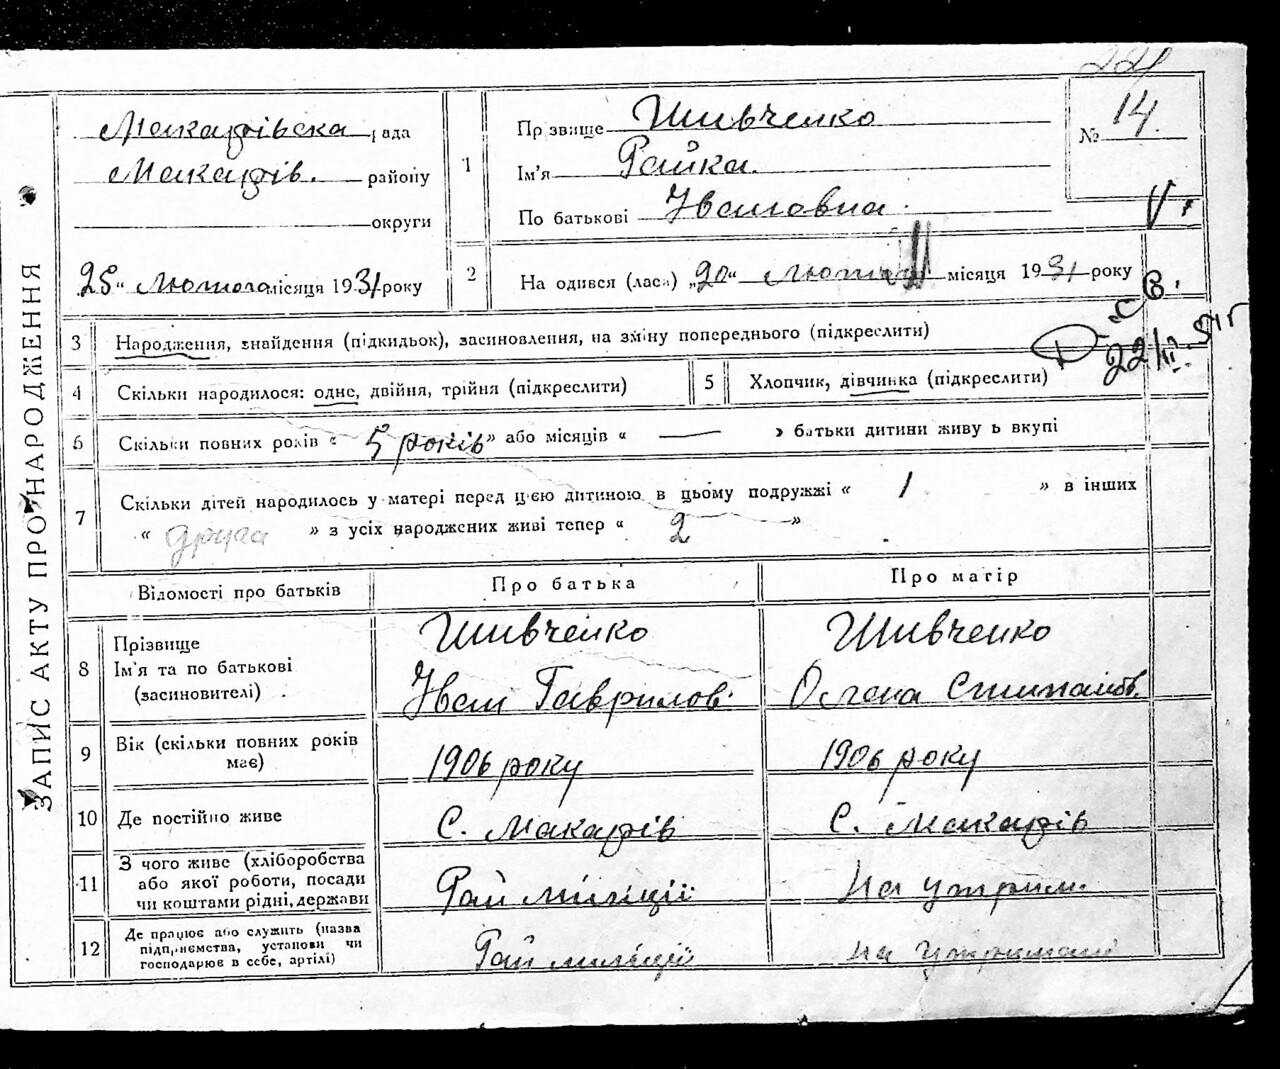 ЗАПИС АКТУ ПРО НАРОДЖЕННЯ
Макарівска рада
Макарів. району
округи
25 " лютого місяця 1931 року
1
Прізвище Шивченко
Ім'я Райка.
По батькові Ивановна.
№ 14.
2
На одився (лась) „20“ лютого місяця 1931 року
22/II. 51 г
3 Народження, знайдення (підкидьок), засиновлення, на зміну попереднього (підкреслити)
4 Скільки народилося: одне, двійня, трійня (підкреслити)
5 Хлопчик, дівчинка (підкреслити)
6 Скільки повних років « 5 років » або місяців « — » батьки дитини живу ь вкупі
7 Скільки дітей народилось у матері перед цією дитиною в цьому подружжі « 1 » в інших
« друга » з усіх народжених живі тепер « 2 »
Відомості про батьків Про батька Про матір
8 Прізвище Шивченко Шивченко
Ім'я та по батькові
(засиновителі) Иван Гаврилов.
9 Вік (скільки повних років має) 1906 року 1906 року
10 Де постійно живе С. Макарів С. Макарів
11 З чого живе (хліборобства або якої роботи, посади чи коштами рідні, держави Рай міліції На утрим.
12 Де працює або служить (назва підприємства, установи чи господарює в себе, артілі) Рай міліції На утриманні